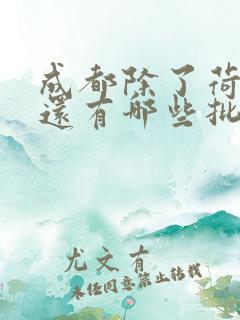 成都除了荷
還有哪些批
尤文有
未经同意禁止转载